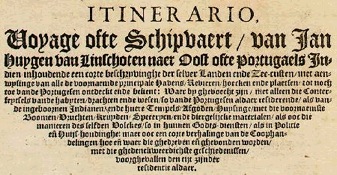 ITINERARIO,
Voyage ofte Schipvaert / van Jan
Huygen van Linschoten naer Oost ofte Portugaels In-
dien inhoudende een corte beschryvinghe der selver Landen ende Zee-custen / met aen-
wysinge van alle de voornaemde principale Havens, Revieren, hoecken ende plaetsen, tot noch
toe vande Portugesen ontdeckt ende bekent: Waer by ghevoecht zijn, niet alleen die Conter-
feytsels vande habyten, drachten ende wesen, so vande Portugesen aldaer residerende, als van-
de ingeboornen Indianen, ende huere Tempels, Afgoden, Huysinge, met die voornaemste
Boomen, Vruchten, Kruyden, Speceryen, ende diergelijcke materialen, als ooc die
manieren des selfden Volckes, so in hunnen Godts-diensten, als in Politie
en Huijs-houdinghe: maer ooc een corte verhalinge van de Coophan-
delingen, hoe en waer die ghedreven en ghevonden worden,
met die ghedenckweerdichste geschiedenissen,
voorghevallen den tijt zijnder
residentie aldaer.